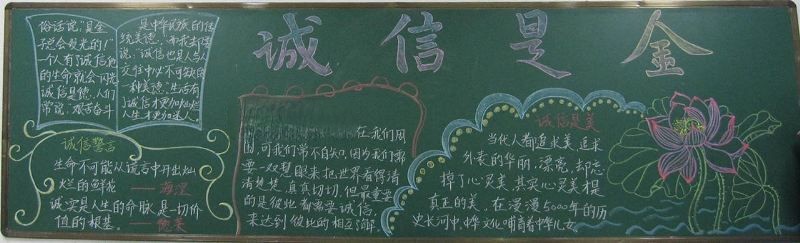 诚信是金
俗话说："是金
子总会发光的！"
一个人有了诚信他
的生命就会闪光
诚信是德，人们
常说：艰苦奋斗
是中华民族的传
统美德，而我却要
说：诚信也是人与人
交往中必不可缺的
一种美德。生活有
了诚信才更加灿烂
人生才更加迷人。
诚信警言
生命不可能从谎言中开出灿
烂的鲜花 ——海涅
诚实是人生的命脉，是一切价
值的根基。——德莱
在我们周
围，可我们常不自知。因为我们需
要一双慧眼来把世界看得清
清楚楚，真真切切，但最重要
的是彼此都需要诚信，
来达到彼此的相互了解。
诚信是美
当代人都追求美，追求
外表的华丽、漂亮，却忘
掉了心灵美，其实心灵美才是
真正的美，在漫漫5000年的历
史长河中，中华文化哺育着中华儿女。